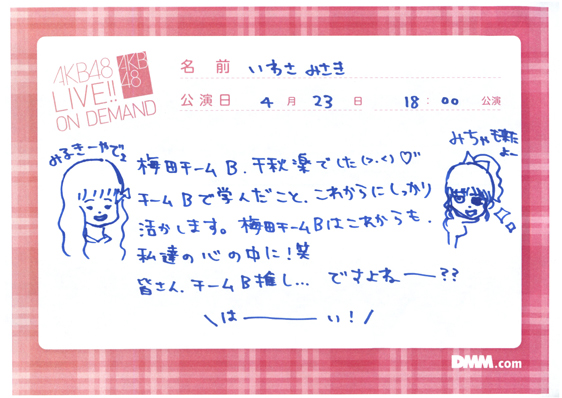 AKB48
LIVE!!
ON DEMAND
AKB
48
名前 いわさ みさき
公演日 4月 23日 18:00 公演
みるきーやで
みちゃも来た
よー
梅田チームB、千秋楽でした(>.<)♡
チームBで学んだこと、これからにしっかり
活かします。梅田チームBはこれからも、
私達の心の中に!笑
皆さん、チームB推し... ですよねー??
\はーい!/
DMM.com